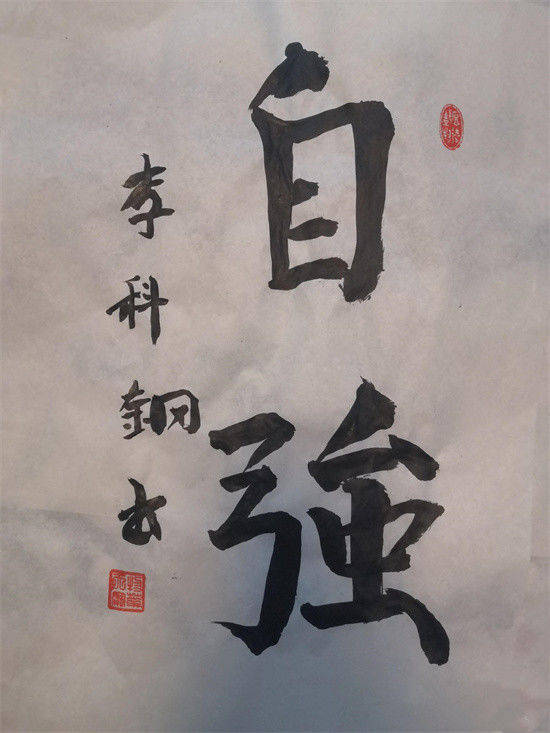 自強
李科銅书